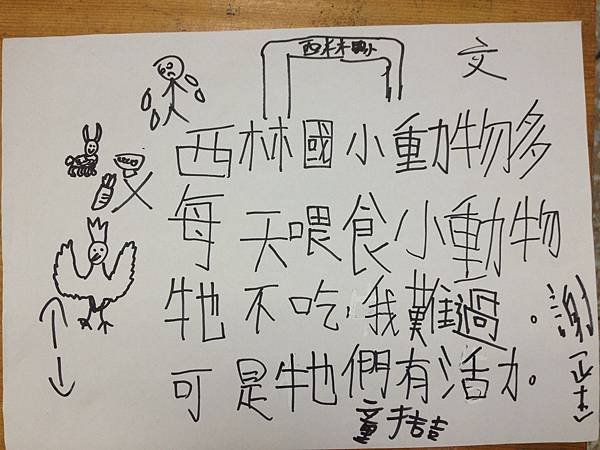 西林國小
文
西林國小動物多
每天喂食小動物
牠不吃，我難過。
可是牠們有活力。
謝
童拮